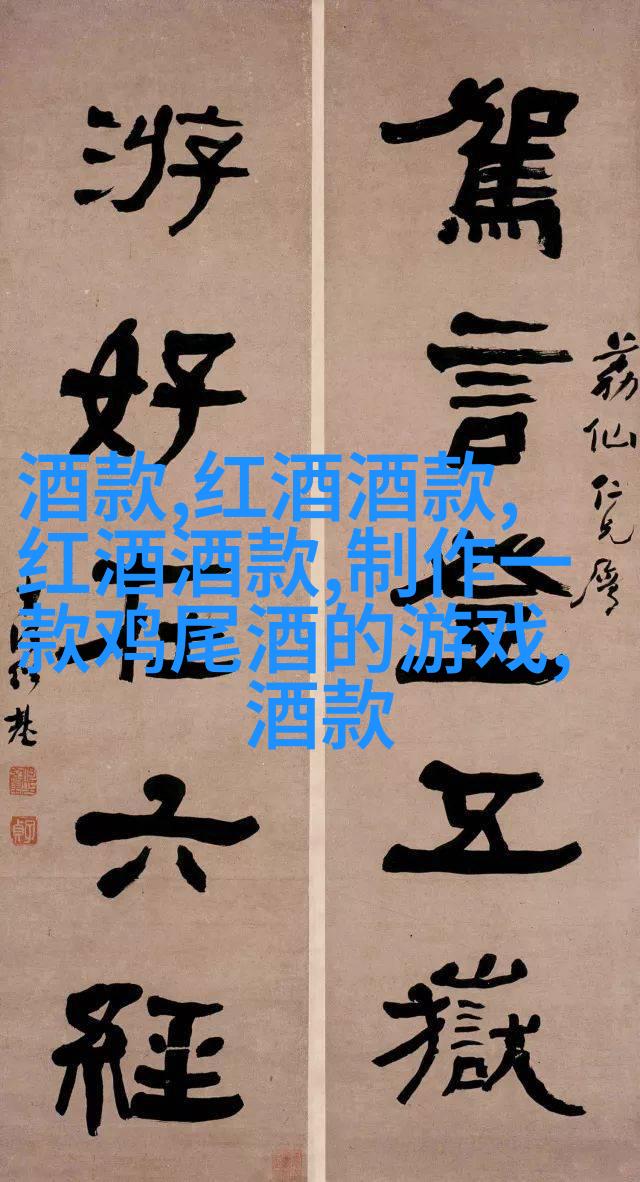 駕言登五嶽
荔仙仁兄屬
游好在六經
酒款,红酒酒款,
红酒酒款,制作一
款鸡尾酒的游戏,
酒款